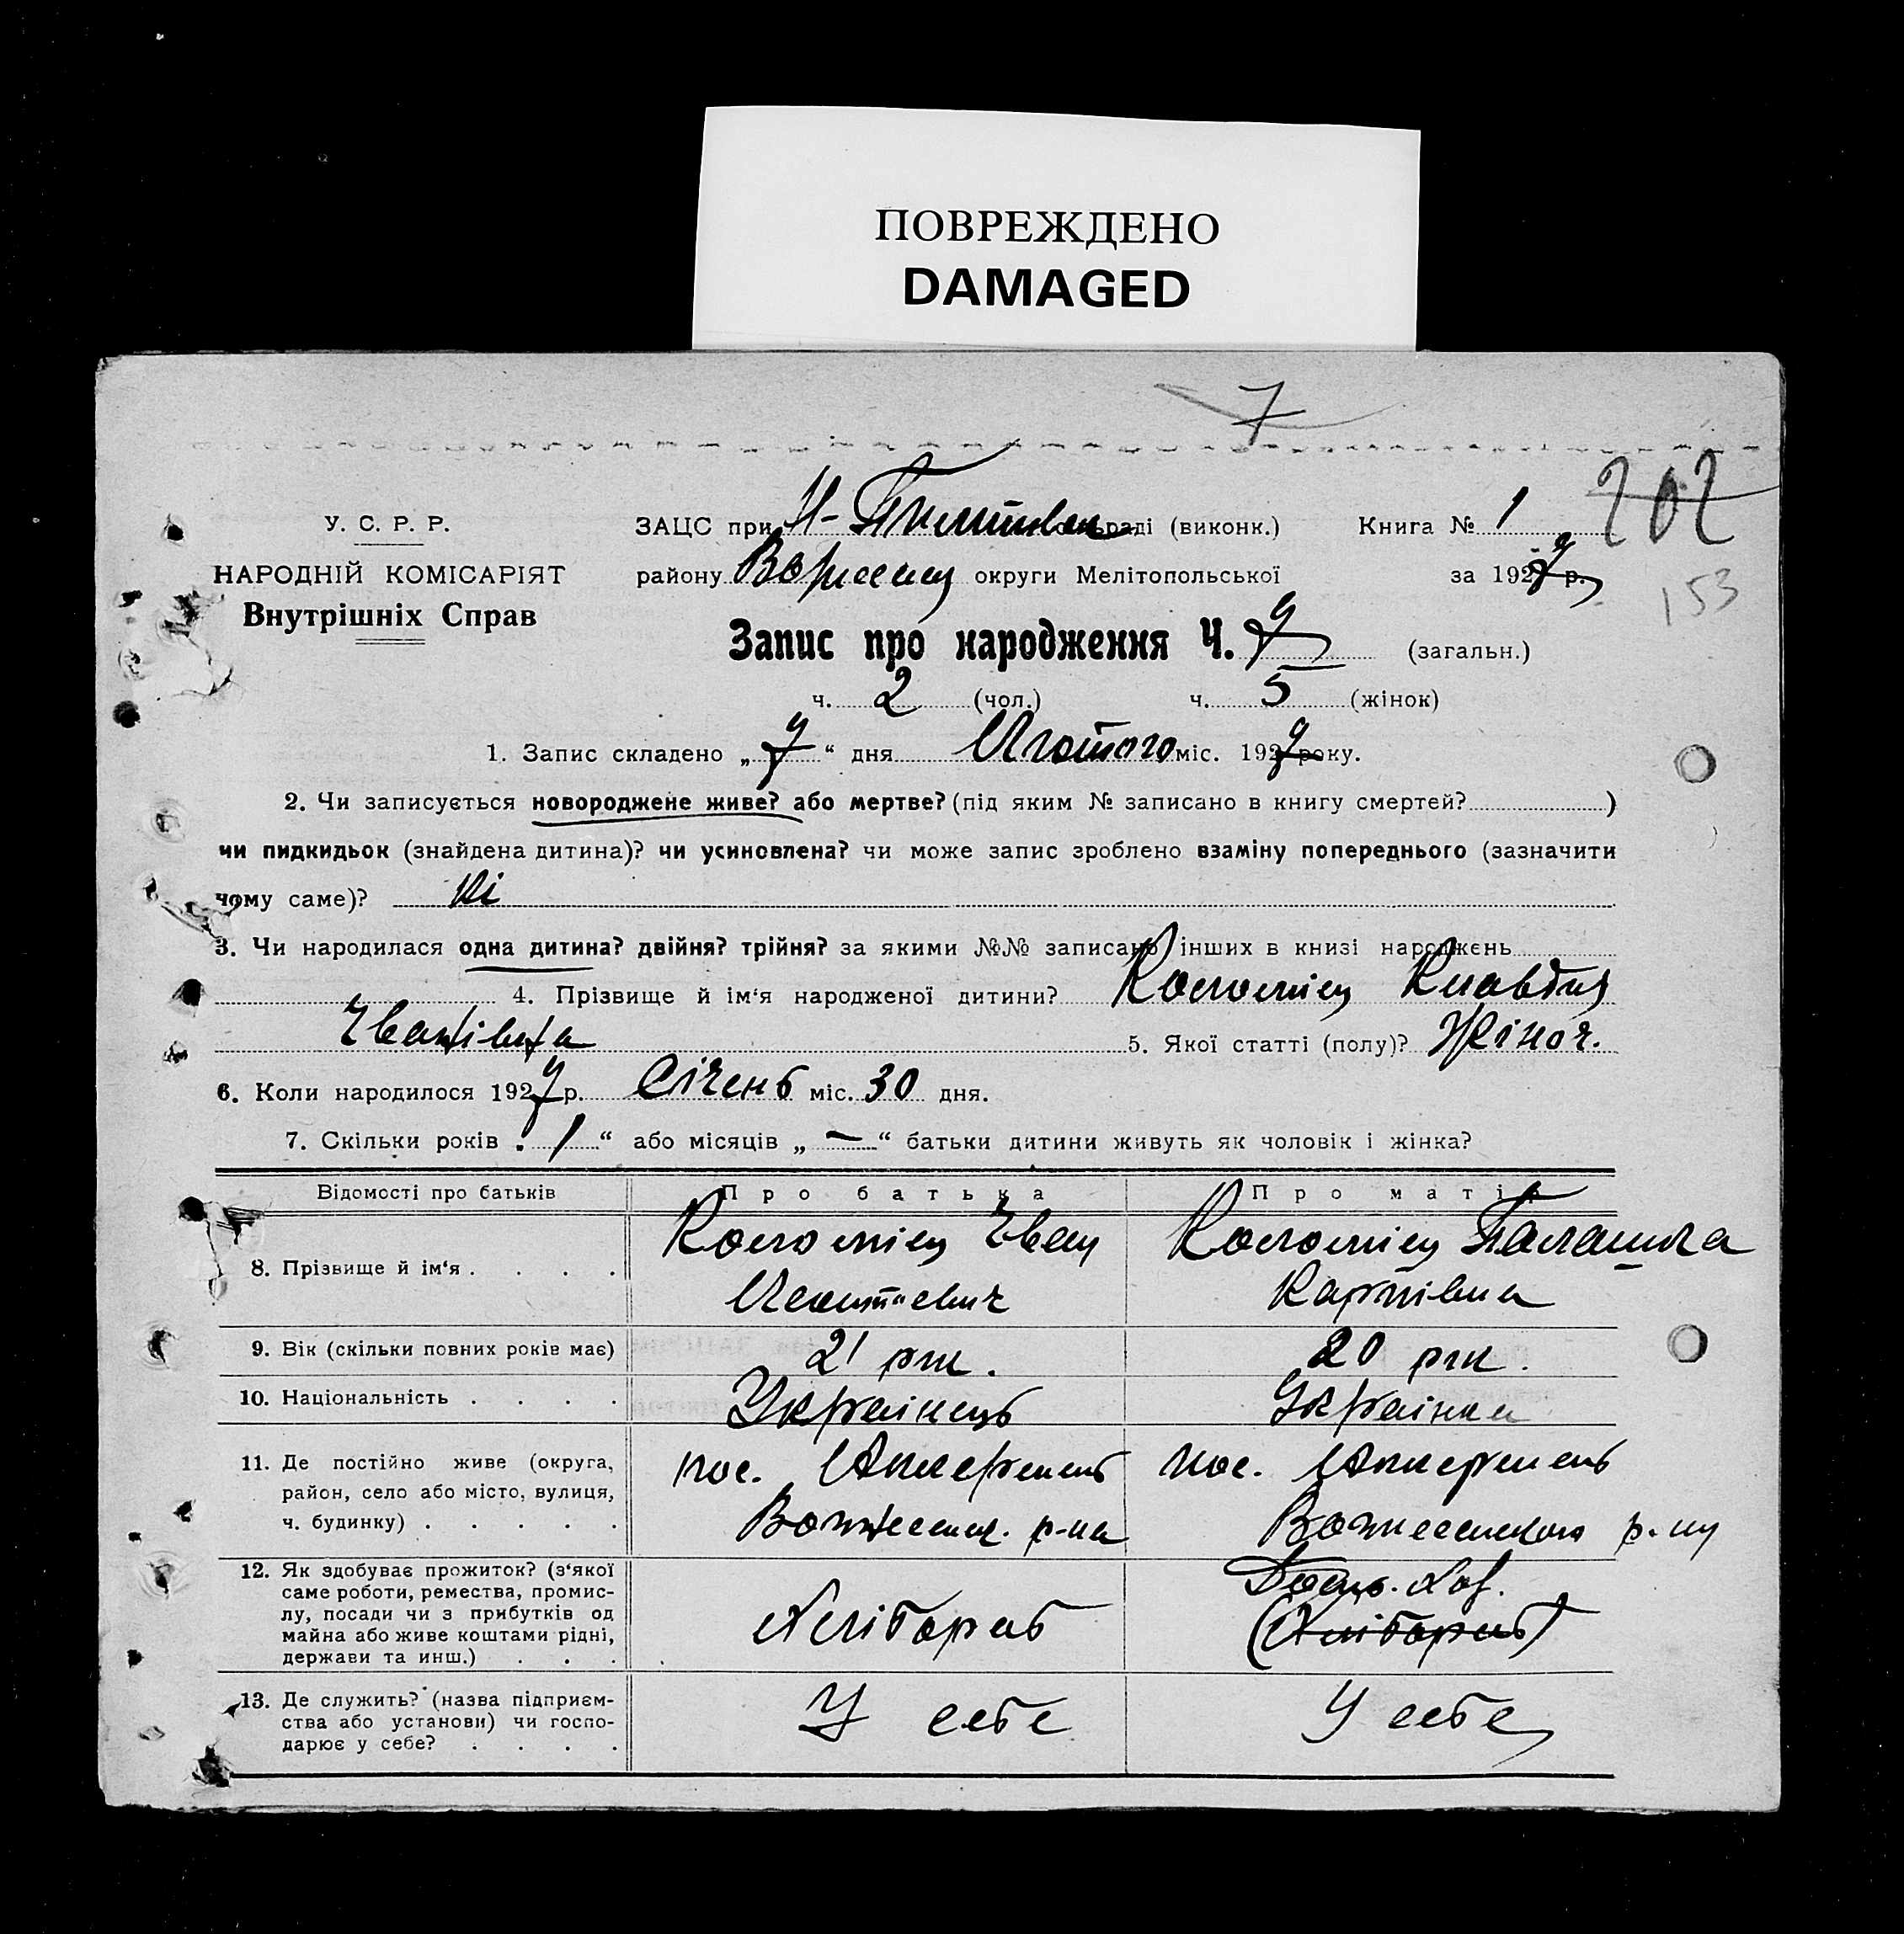 ПОВРЕЖДЕНО
DAMAGED
7
202
У. С. Р. Р. ЗАЦС при раді (виконк.) Книга № 1
НАРОДНІЙ КОМІСАРІЯТ району округи Мелітопольської за 1927 р.
153
Внутрішніх Справ
Запис про народження Ч. 7 (загальн.)
ч. 2 (чол.) ч. 5 (жінок)
1. Запис складено „ 7 “ дня Лютого міс. 1927 року.
2. Чи записується новороджене живе? або мертве? (під яким № записано в книгу смертей? )
чи пидкидьок (знайдена дитина)? чи усиновлена? чи може запис зроблено взаміну попереднього (зазначити
чому саме)? ні
3. Чи народилася одна дитина? двійня? трійня? за якими №№ записано інших в книзі народжень
4. Прізвище й ім‘я народженої дитини? Коломієц Клавдия
Іванівна 5. Якої статті (полу)? Жіноч.
6. Коли народилося 1927 р. Січень міс. 30 дня.
7. Скільки років „ 1 “ або місяців „ — “ батьки дитини живуть як чоловік і жінка?
Відомості про батьків Про батька Про матір
8. Прізвище й ім‘я . . . . Коломієц Іван Коломієц Палашка
Карпівна
9. Вік (скільки повних років має) 21 рік. 20 рік.
10. Національність . . . . Українець Українка
11. Де постійно живе (округа, пос. пос.
район, село або місто, вулиця,
ч. будинку) . . . . . Вознесенск. р-на Вознесенского р-ну
12. Як здобуває прожиток? (з‘якої
саме роботи, ремества, промис-
лу, посади чи з прибутків од
майна або живе коштами рідні, Хлібороб (Хлібороб)
держави та инш.) . . .
13. Де служить? (назва підприєм-
ства або установи) чи госпо- У себе У себе
дарює у себе? . . . .